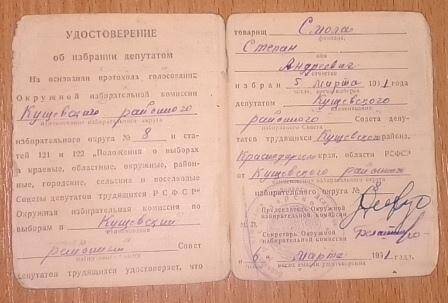 УДОСТОВЕРЕНИЕ
об избрании депутатом
На основании протокола голосования
Окружной избирательной комиссии
Кущевского районного
наименование избирательного округа
избирательного округа № 8 и ста-
тей 121 и 122 „Положения о выборах
в краевые, областные, окружные, район-
ные, городские, сельские и поселковые
Советы депутатов трудящихся РСФСР“
Окружная избирательная комиссия по
выборам в Кущевский
районный Совет
депутатов трудящихся удостоверяет, что
товарищ Смола
фамилия,
Степан
имя
Андреевич
отчество
избран 5 марта 1961 года
депутатом Кущевского
районного Совета депу-
татов трудящихся Кущевского района,
Краснодарского края, области РСФСР
от Кущевского районного
избирательного округа № 8
Председатель Окружной
избирательной комиссии
М.П.
Секретарь Окружной
избирательной комиссии
6 марта 1961 года